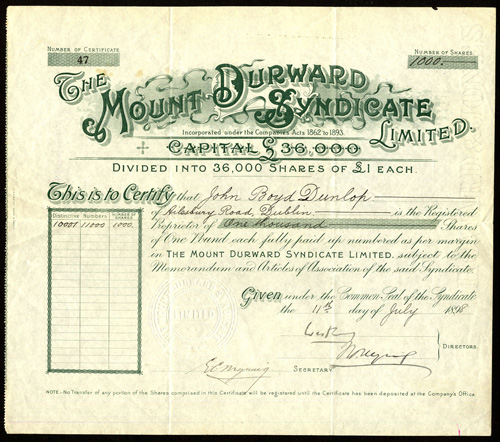 NUMBER OF CERTIFICATE
47
NUMBER OF SHARES.
1000.
THE
MOUNT DURWARD
SYNDICATE
LIMITED.
Incorporated under the Companies Acts 1862 to 1893.
CAPITAL £36,000
DIVIDED INTO 36,000 SHARES OF £1 EACH.
This is to Certify that John Boyd Dunlop
of Ailesbury Road, Dublin. is the Registered
Proprietor of One thousand Shares
of One Pound each fully paid up numbered as per margin
in THE MOUNT DURWARD SYNDICATE LIMITED. subject to the
Memorandum and Articles of Association of the said Syndicate.
DISTINCTIVE NUMBERS NUMBER OF SHARES
10001 11000 1000.
Given under the Common Seal of the Syndicate
the 11th day of July 1898
DIRECTORS.
SECRETARY
NOTE.-No Transfer of any portion of the Shares comprised in this Certificate will be registered until the Certificate has been deposited at the Company's Office.